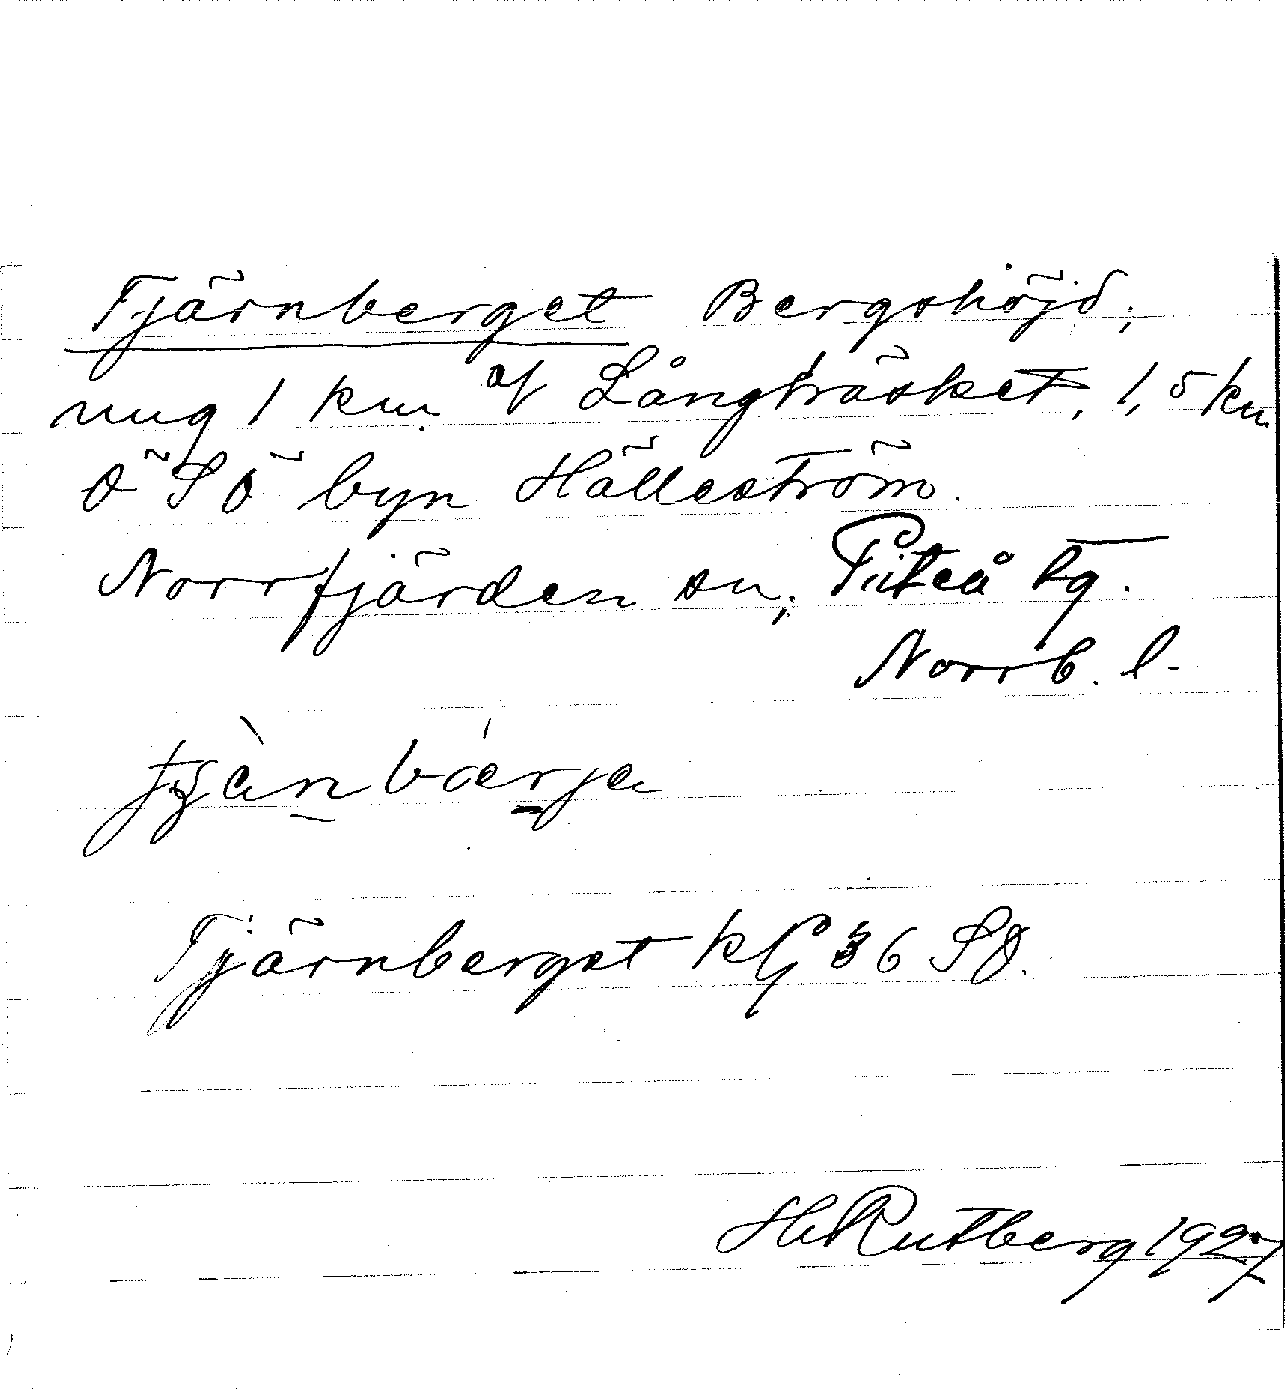 Tjärnberget Bergshöjd,
ung 1 km. af Långträsket, 1,5 km
ÖSÖ byn Hälleström.
Norrfjärden sn, Piteå tg.
Norrb. l.
Tjärnberget kG 36 SO.
H Rutberg 1927